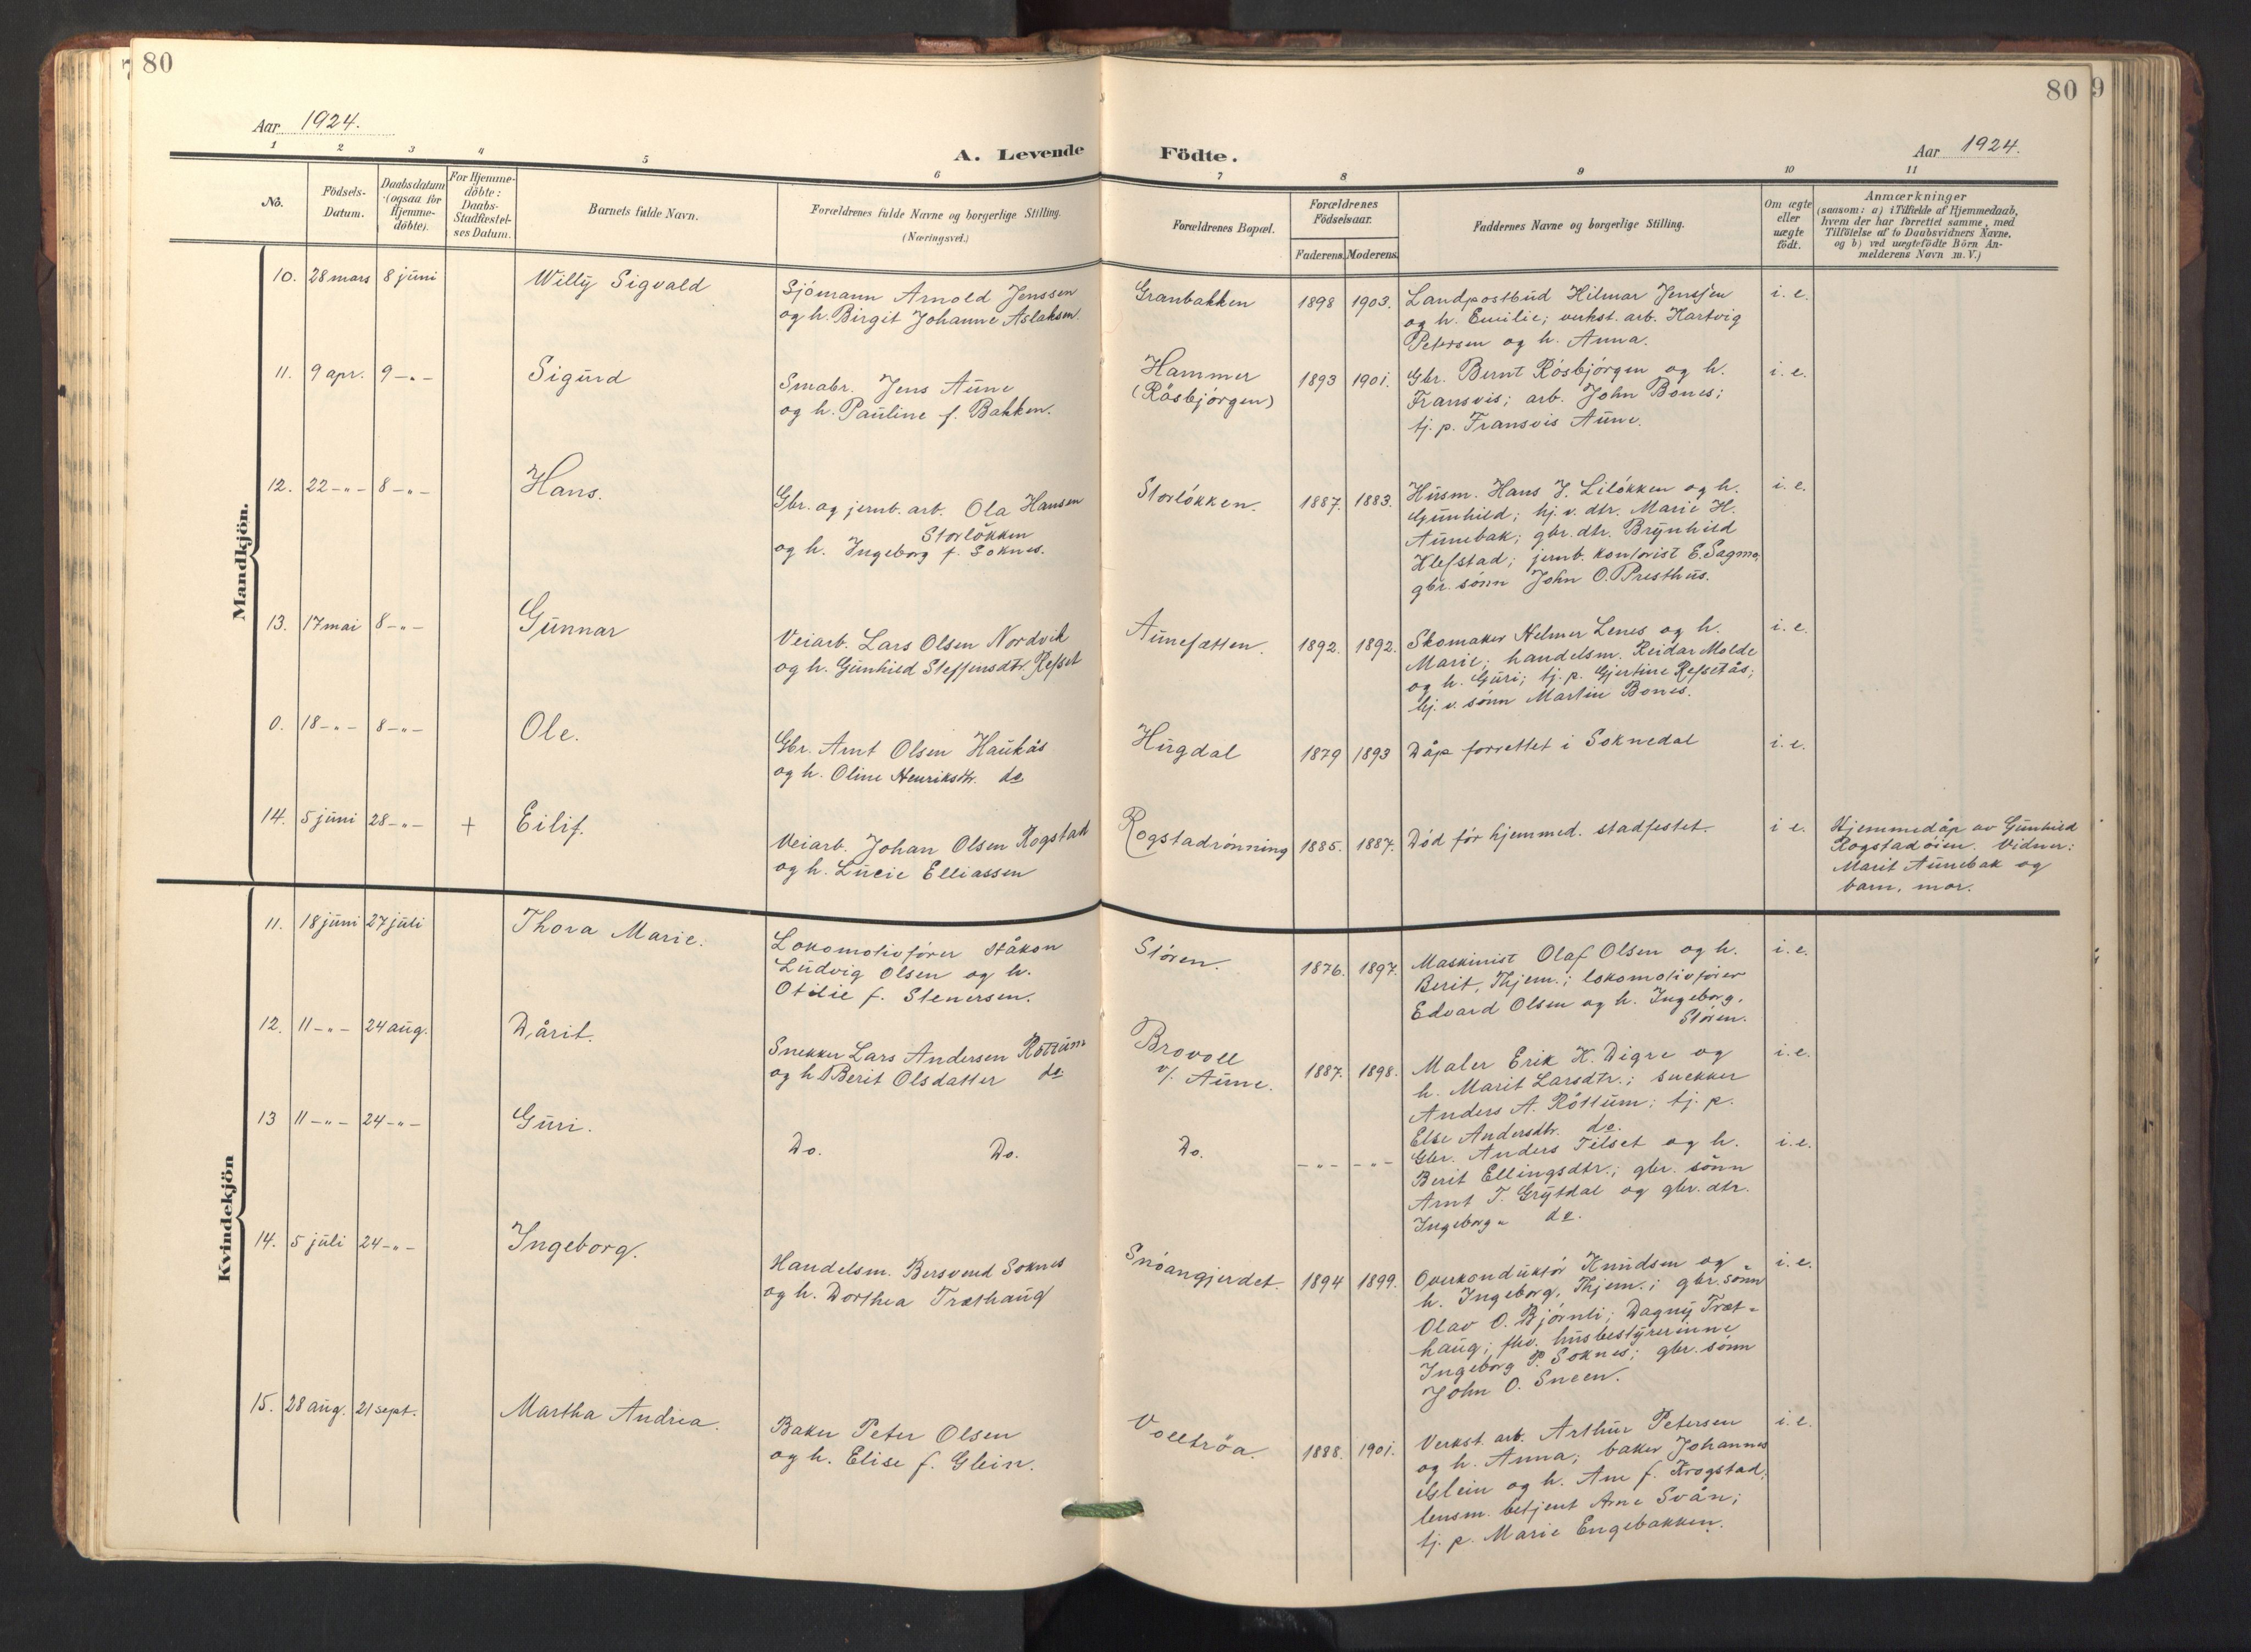 80
80 9
Aar 1924.
Aar 1924.
A. Levende Födte.
1 2 3 4 5 6 7 8 9 10 11
No.
Födsels-
Datum.
Daabsdatum
(ogsaa for
Hjemme-
döbte).
For Hjemme-
döbte:
Daabs-
Stadfæstel-
ses Datum.
Barnets fulde Navn.
Forældrenes fulde Navne og borgerlige Stilling.
(Næringsvei.)
Forældrenes Bopæl.
Forældrenes
Födselsaar.
Faderens. Moderens.
Faddernes Navne og borgerlige Stilling.
Om ægte
eller
uægte
födt.
Anmærkninger
(saasom: a) i Tilfælde af Hjemmedaab,
hvem der har forrettet samme, med
Tilföielse af to Daabsvidners Navne,
og b) ved uægtefödte Börn An-
melderens Navn m. V.)
Mandkjön.
10. 28 mars 8 juni Willy Sigvald
Sjömann Arnold Jenssen
og h. Birgit Johanne Aslaksen.
Granbakken 1898 1903.
Landpostbud Hilmar Jenssen
og h. Emilie; verkst. arb. Hartvig
Petersen og h. Anna.
i. e.
11. 9 apr. 9 -"- Sigurd
Smabr. Jens Aune
og h. Pauline f. Bakken.
Hammer
(Rösbjörgen)
1893 1901.
Gbr. Bernt Rösbjörgen og h.
Fransvis; arb. John Bones;
tj. p. Fransvis Aune.
i. e.
12. 22 -"- 8 -"- Hans.
Gbr. og jernb. arb. Ola Hansen
Storlökken
og h. Ingeborg f. Soknes.
Storlökken. 1887. 1883.
Husm. Hans J. Lilökken og h.
Gunhild; hj. v. dtr. Marie H.
Aunebak; gbr. dtr. Brynhild
Klefstad; jernb. kontorist E. Sagmo,
gbr. sönn John O. Presthus.
i. e.
13. 17 mai 8 -"- Gunnar
Veiarb. Lars Olsen Nordvik
og h. Gunhild Steffensdtr. Refset
Aunefætten. 1892. 1892.
Skomaker Helmer Lenes og h.
Marie; handelsm. Reidar Molde
og h. Guri; tj. p. Gjertine Refsetås;
hj. v. sönn Martin Bones.
i. e.
0. 18 -"- 8 -"- Ole.
Gbr. Arnt Olsen Haukås
og h. Oline Henriksdtr. do
Hugdal 1879 1893 Dåp forrettet i Soknedal i. e.
14. 5 juni 28 -"- + Eilif.
Veiarb. Johan Olsen Rogstad
og h. Lucie Elliassen
Rogstadrönning 1885. 1887. Död för hjemmed. stadfestet. i e.
Hjemmedåp av Gunhild
Rogstadöien. Vidner:
Marit Aunebak og
barn. mor.
Kvindekjön
11. 18 juni 27 juli Thora Marie.
Lokomotivförer Håkon
Ludvig Olsen og h.
Otilie f. Stenersen.
Stören. 1876. 1897.
Maskinist Olaf Olsen og h.
Berit, Thjem.; lokomotivförer
Edvard Olsen og h. Ingeborg,
Stören.
i. e.
12. 11 -"- 24 aug. Dårit.
Snekker Lars Andersen Röttum
og h. Berit Olsdatter do
Brovoll
v/. Aune.
1887. 1898.
Maler Erik K. Digre og
h. Marit Larsdtr.; snekker
Anders A. Röttum; tj. p.
Else Andersdtr. do.
i. e.
13 11 -"- 24 -"- Guri.
Do. Do. Do. -"- -"-
Gbr. Anders Tilset og h.
Berit Ellingsdtr.; gbr. sönn
Arnt T. Grytdal og gbr. dtr.
Ingeborg " do.
i. e.
14. 5 juli 24 -"- Ingeborg.
Handelsm. Bersvend Soknes
og h. Dorthea Træthaug
Snöangjerdet. 1894 1899.
Overkonduktör Knudsen og
h. Ingeborg, Thjem.; gbr. sönn
Olav O. Bjørnli; Dagny Træt-
haug; fhv. husbestyrerinne
Ingeborg P. Soknes; gbr. sönn
John O. Sneen.
i. e.
15. 28 aug. 21 sept. Martha Andrea.
Baker Peter Olsen
og h. Elise f. Glein.
Volltröa. 1888. 1901.
Verkst. arb. Arthur Petersen
og h. Anna; baker Johannes
Glein og h. Ane f. Krogstad;
lensm. betjent Arne Svån;
tj. p. Marie Engebakken.
i. e.